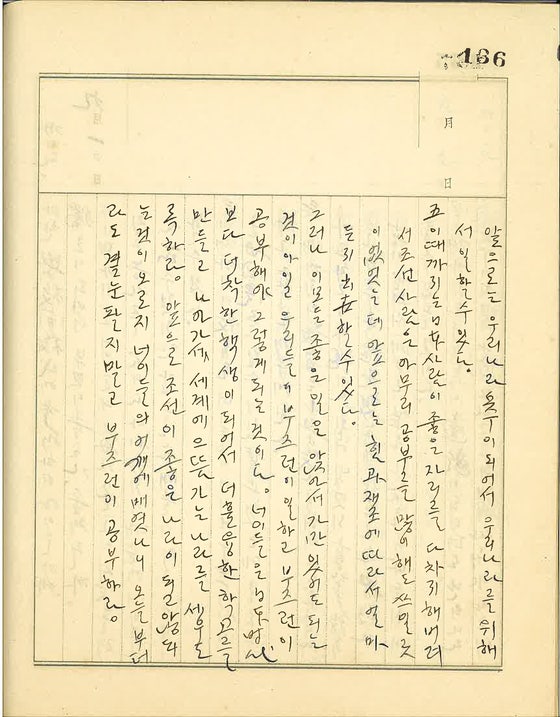 186
月
日
앞으로는 우리나라 옷구이되어서 우리나라를 위해
서 일할수있능.
五 이때까지는 사람이 좋은 자리를 다차지해버려
서 조선사람은 아무리 공부를 많이해도 쓰일곳
이없엇는데 앞으로는 힘과 재조에따라서 얼마
든지 出世할수있다.
그러나 이모든 좋은일을 앉아서 기간있어도 되는
것이아일 우리들이 부즈런이일하고 부즈런이
공부해야 그렇게되는것이다. 너이들은
보다 더착한 핵생이되어서 더훌융한 학교를
만들고 나아가세 세게에 으뜸가는 나라를 세우도
록하라. 앞으로 조선이 좋은 나라이 되고않되
는것이오로지 너이들의 어깨에매엿나니 오늘부터
라도 곁눈팔지말고 부즈런이 공부하라.